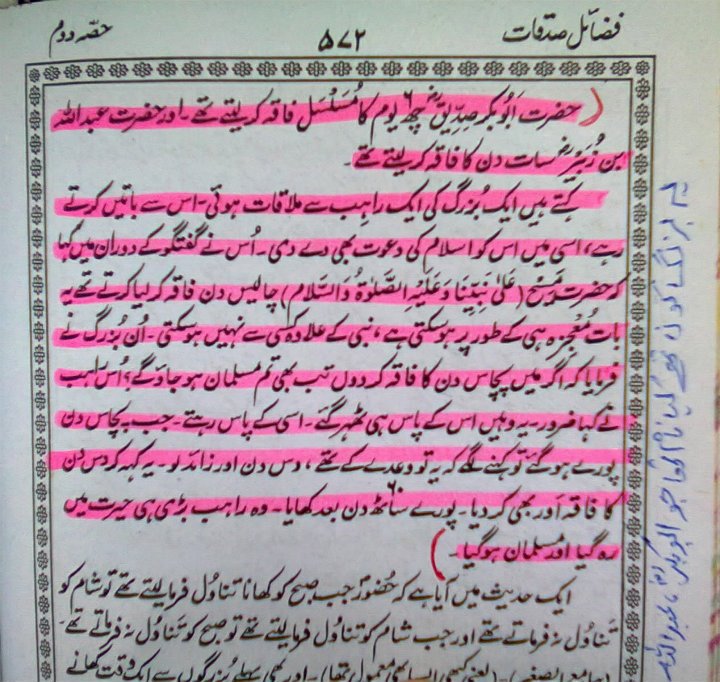 فضائل صدقات ۵۷۲ حصّہ دوم
حضرت ابُوبکر صدِّیقؓ چھ ۶ یوم کا مُسَلْسَل فاقہ کر لیتے تھے۔ اور حضرت عبداللہ
بن زُبَیْرؓ سات دن کا فاقہ کر لیتے تھے۔
کہتے ہیں ایک بُزرگ کی ایک راہِب سے ملاقات ہوئی۔ اس سے باتیں کرتے
رہے، اسی میں اس کو اسلام کی دعوت بھی دے دی۔ اُس نے گفتگو کے دوران میں کہا
کہ حضرت مسیح (عَلیٰ نَبِیِّنَا وَعَلَیْہِ الصَّلوٰۃُ وَالسَّلام) چالیس دن فاقہ کر لیا کرتے تھے یہ
بات مُعْجِزہ ہی کے طور پر ہو سکتی ہے، نبی کے علاوہ کسی سے نہیں ہو سکتی۔ اُن بُزرگ نے
فرمایا کہ اگر میں پچاس دن کا فاقہ کر دوں تب بھی تم مسلمان ہو جاؤ گے؟ اُس راہب
نے کہا ضرور۔ یہ وہیں اس کے پاس ہی ٹھہر گئے۔ اسی کے پاس رہتے۔ جب پچاس دن
پورے ہو گئے تو کہنے لگے کہ یہ تو وعدے کے تھے، دس دن اور زائد لو۔ یہ کہہ کر دس دن
کا فاقہ اور بھی کر دیا۔ پورے ساٹھ ۶۰ دن بعد کھایا۔ وہ راہب بڑی ہی حیرت میں
رہ گیا اور مسلمان ہو گیا۔
ایک حدیث میں آیا ہے کہ حُضورؐ جب صبح کو کھانا تناوُل فرما لیتے تھے تو شام کو
تَناوُل نہ فرماتے تھے اور جب شام کو تناوُل فرما لیتے تھے تو صبح کو تَناوُل نہ فرماتے تھے۔
(یعنی کبھی ایسا بھی معمول تھا)۔ اور بھی پہلے بُزرگوں سے ایک وقت کھانے
یہ بزرگ کون تھے